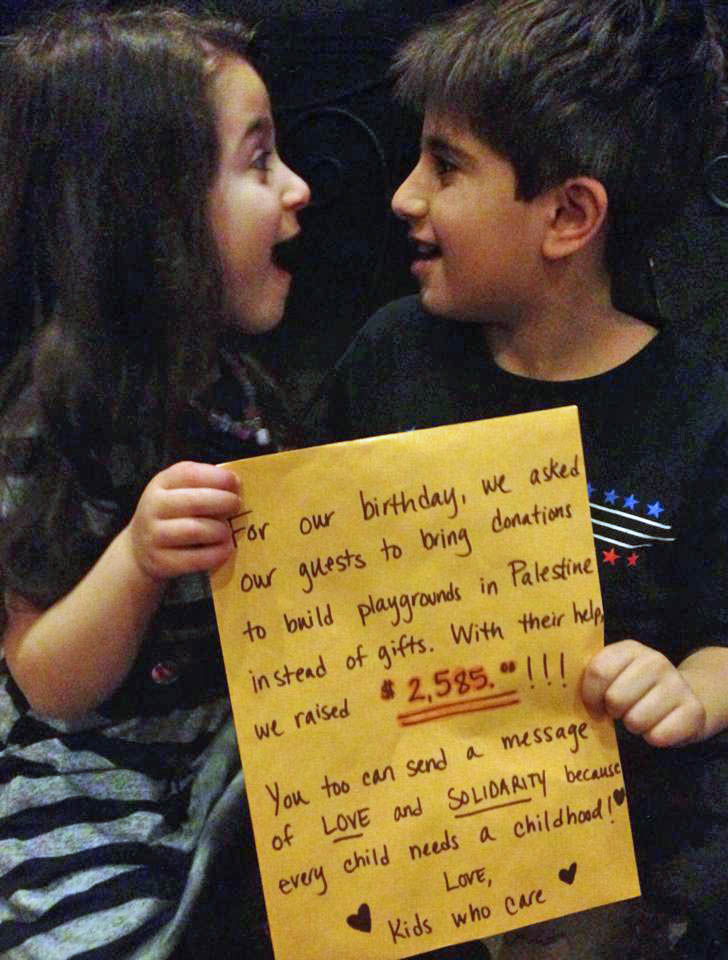 For our birthday, we asked
our guests to bring donations
to build playgrounds in Palestine
instead of gifts. With their help,
we raised $2,585.00!!!
You too can send a message
of LOVE and SOLIDARITY because
every child needs a childhood!
LOVE,
Kids who care